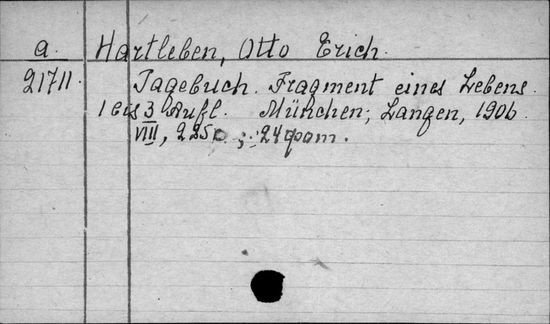 a. Hartleben, Otto Erich.
21711. Tagebuch. Fragment eines Lebens.
1 bis 3 Aufl. München; Langen, 1906.
VIII, 225 p. ;